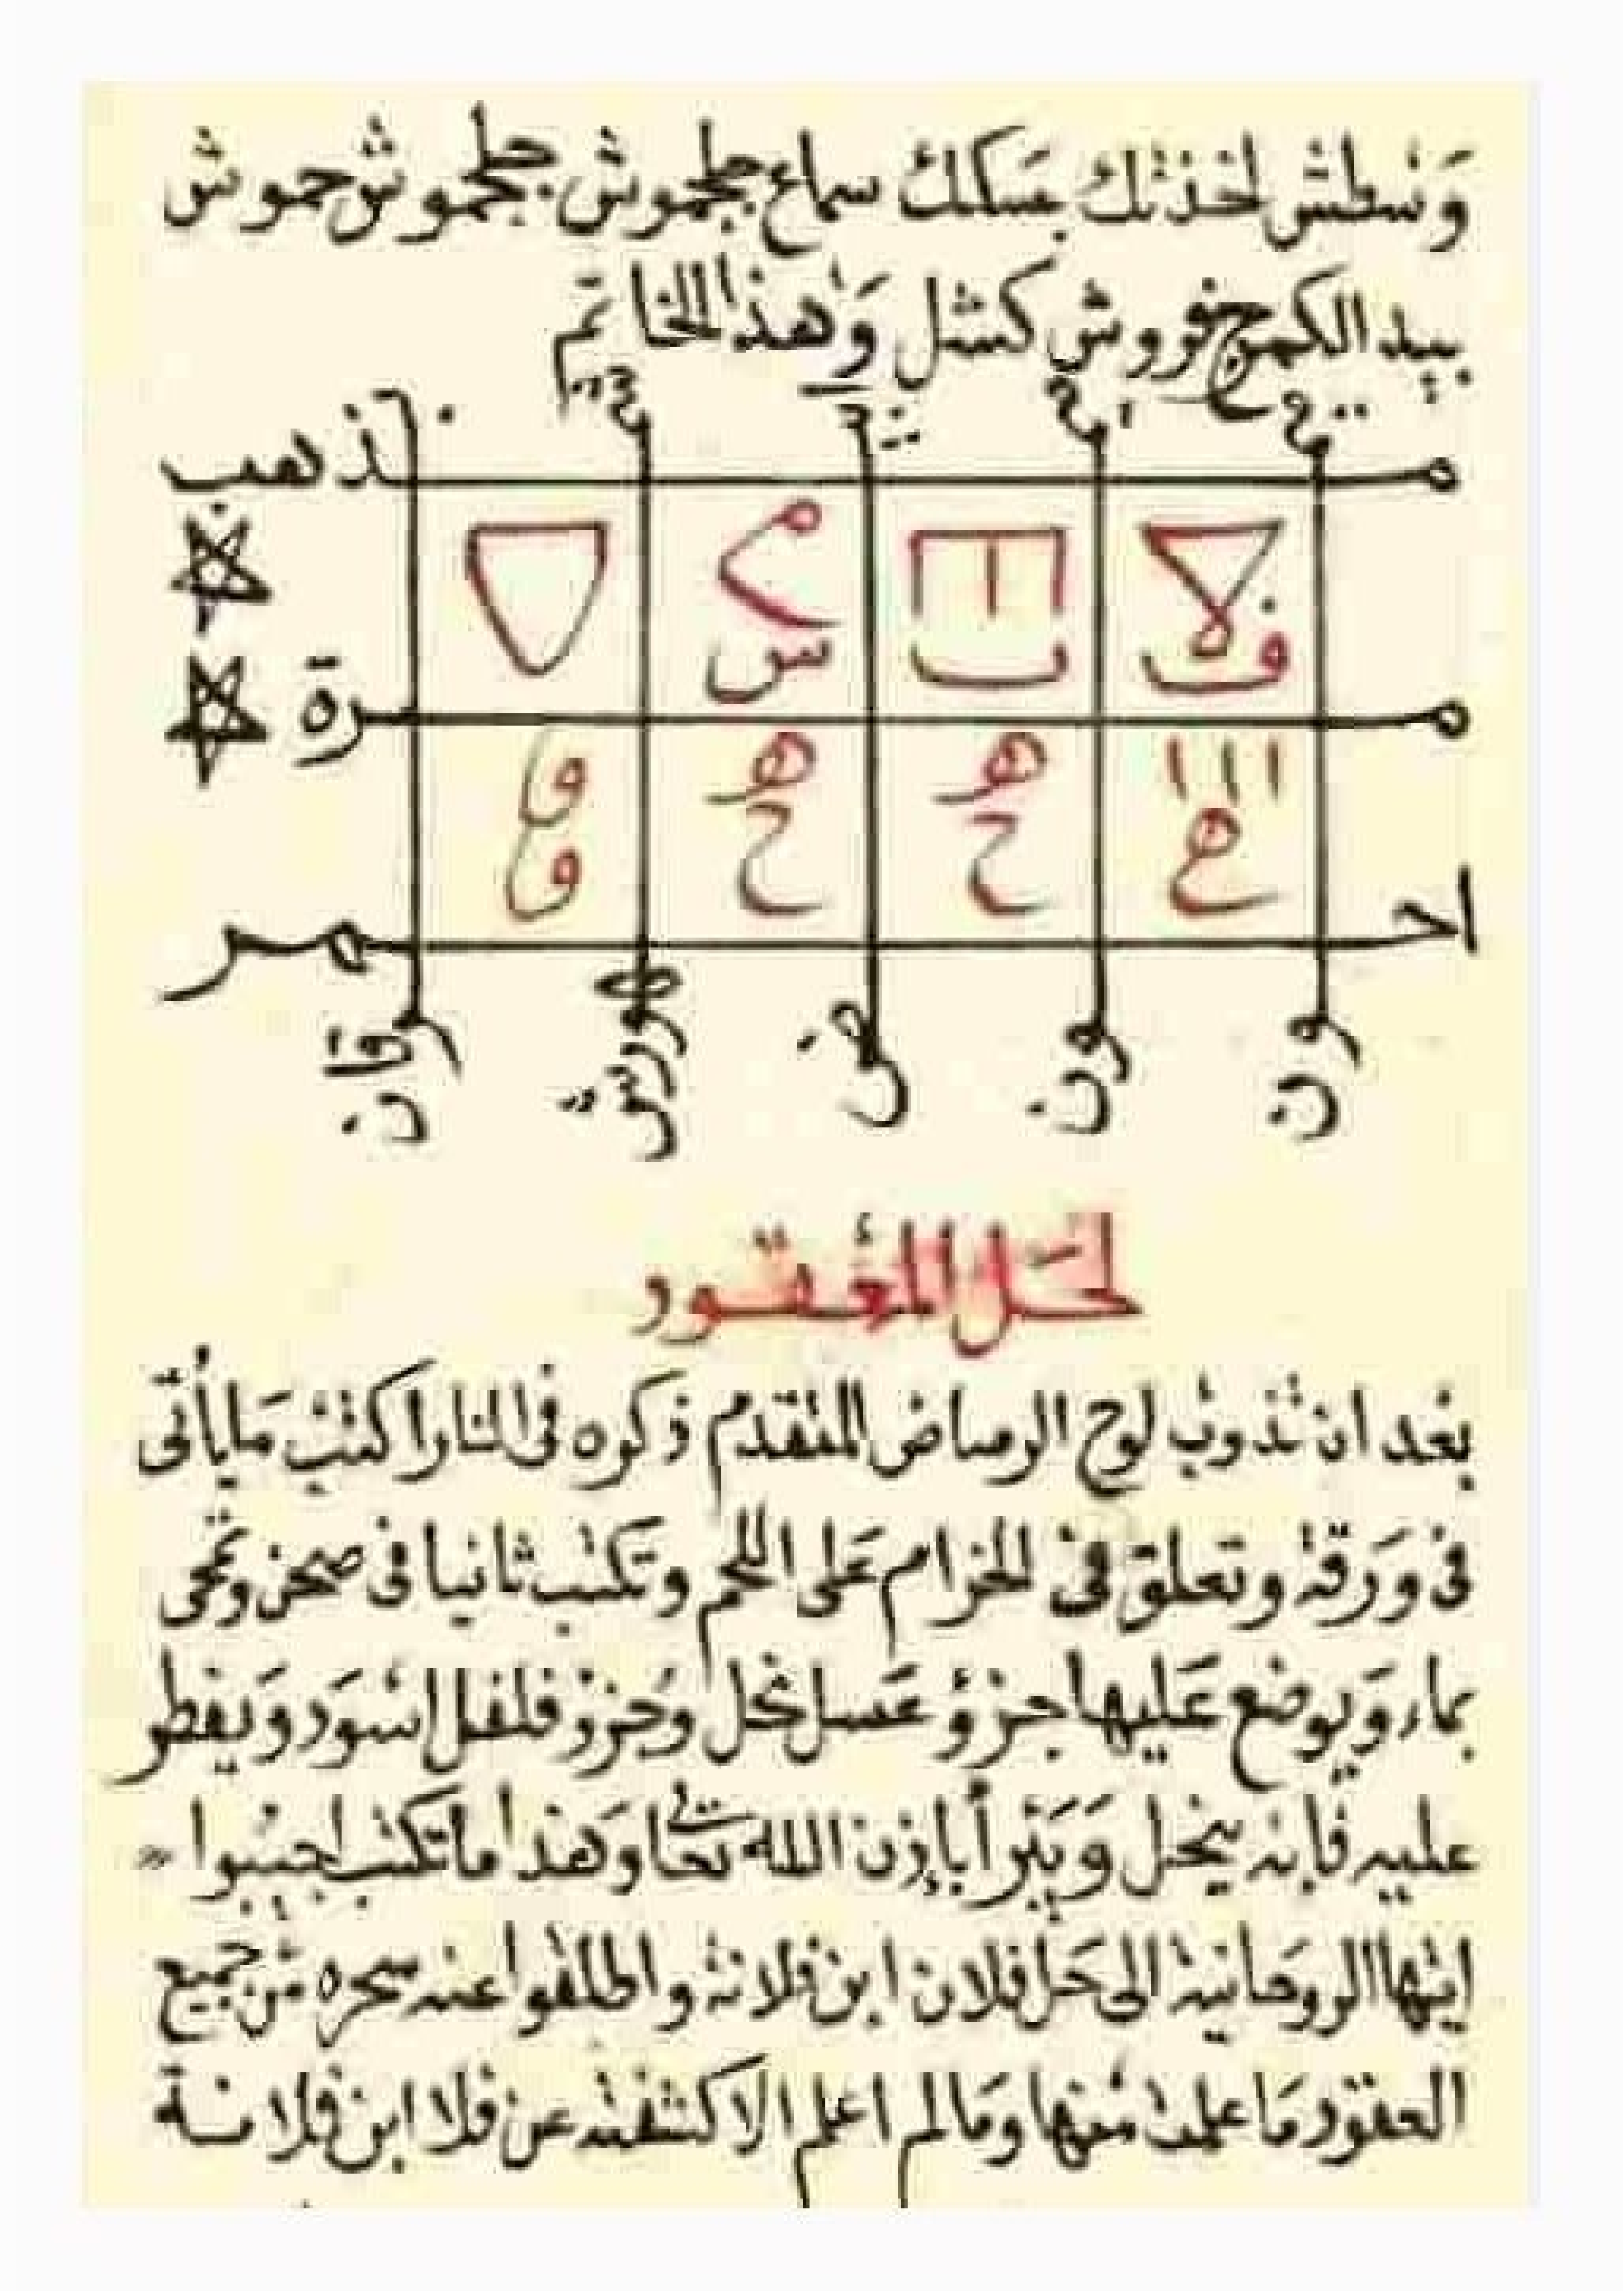 وسطش لخذتك بسكك سماع جلجموش جلجموش حموش
بيد الكمج نوروش كشل وهذا الخاتم
ذهب
م
ف
ف
س
مرة
م
١١١
ع
هـ
ح
هـ
ح
و
و
احـ
ـمر
لحل المعقود
بعد ان تذوب لوح الرصاص المتقدم ذكره فى النار اكتب ما يأتى
فى ورقة وتعلق فى الحزام على اللحم وتكتب ثانيا فى صحن وتمحى
بماء ويوضع عليها جزؤ عسل نحل وجزؤ فلفل اسود ويفطر
عليه فإنه ينحل ويبرأ بإذن الله تعالى وهذا ما تكتب اجيبوا
ايتها الروحانية الى حل فلان ابن فلانة واطلقوا عنه سحره من جميع
العقود ما علمت منها وما لم اعلم الا كشفته عن فلا ابن فلانة